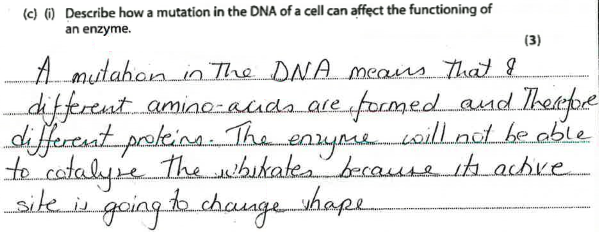 (c) (i) Describe how a mutation in the DNA of a cell can affect the functioning of
an enzyme.
(3)
A mutation in The DNA means That
different amino-acids are formed and Therefore
different proteins. The enzyme will not be able
to catalyse The substrates because its active
site is going to change shape